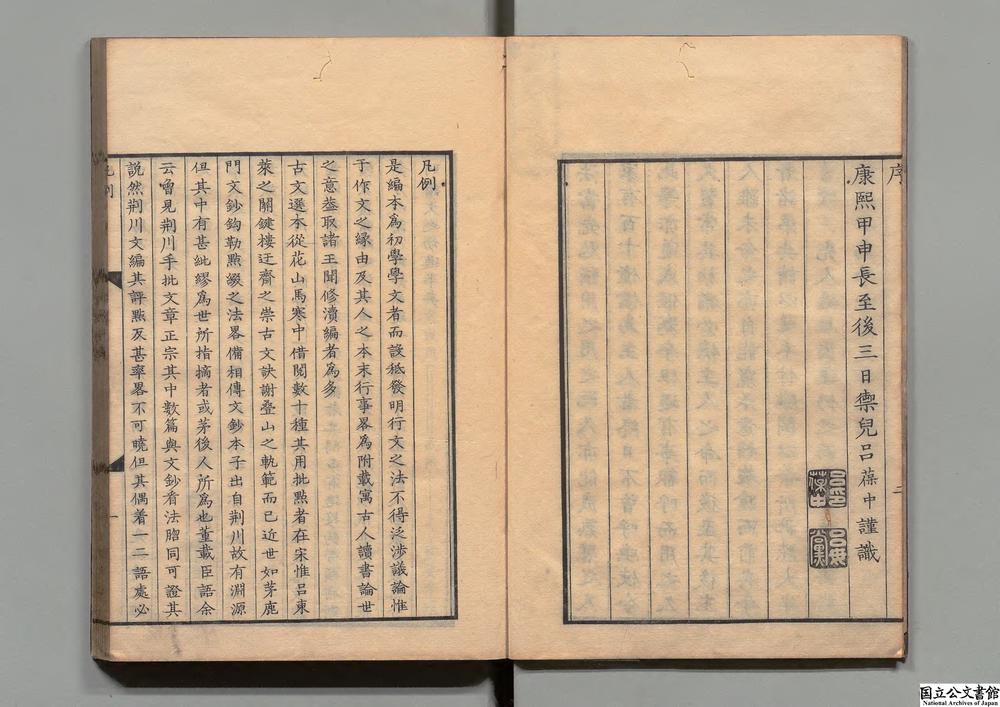 序
康熙甲申長至後三日禦兒呂葆中謹識
二
凡例
是編本為初學學文者而設秪發明行文之法不得泛涉議論惟
于作文之緣由及其人之本末行事畧為附載寓古人讀書論世
之意葢取諸王聞修瀆編者為多
古文選本從花山馬寒中借閱數十種其用批點者在宋惟呂東
萊之關鍵樓迂齋之崇古文訣謝疊山之軌範而已近世如茅鹿
門文鈔鈎勒點綴之法畧備相傳文鈔本子出自荆川故有淵源
但其中有甚紕繆為世所指摘者或茅後人所為也董載臣語余
云曾見荆川手批文章正宗其中數篇與文鈔看法脗同可證其
說然荆川文編其評點反甚率畧不可曉但其偶着一二語處必
凡例
一
国立公文書館
National Archives of Japan